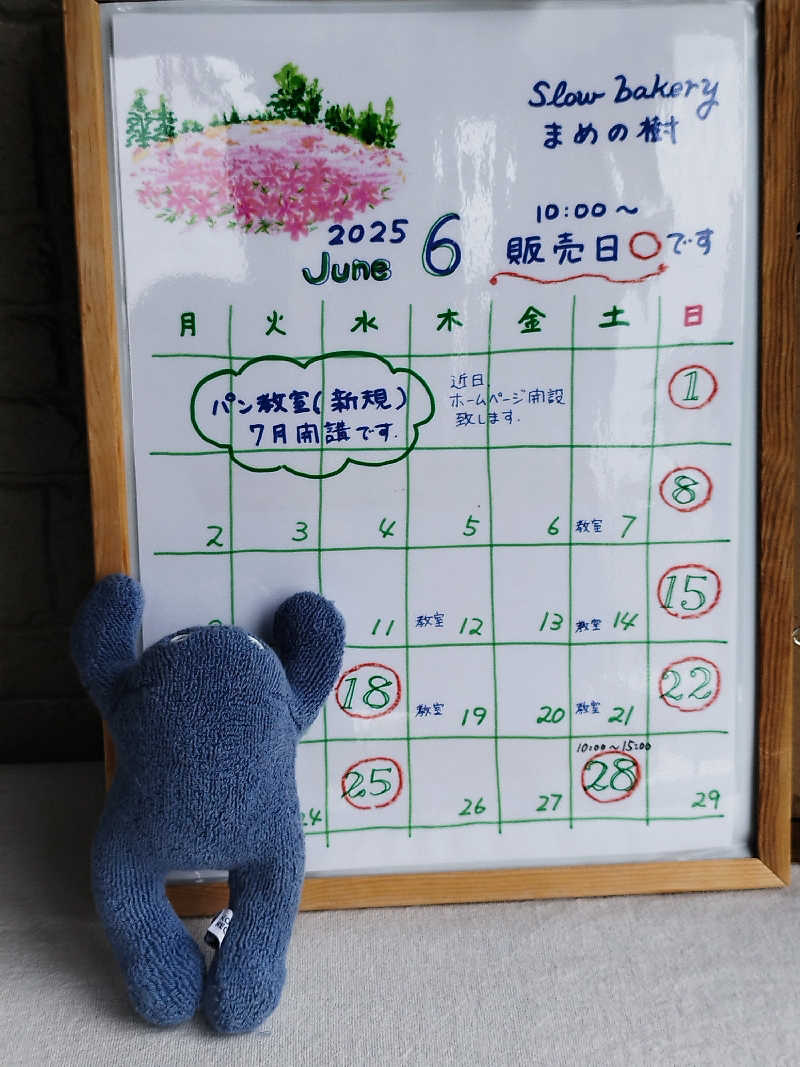 Slow bakery
まめの樹
10:00〜
販売日○です
2025 6
June
月 火 水 木 金 土 日
パン教室(新規)
7月開講です.
近日、
ホームページ開設
致します.
1
2 3 4 5 6 教室 7 8
11 教室 12 13 教室 14 15
18 教室 19 20 教室 21 22
10:00〜15:00
24 25 26 27 28 29